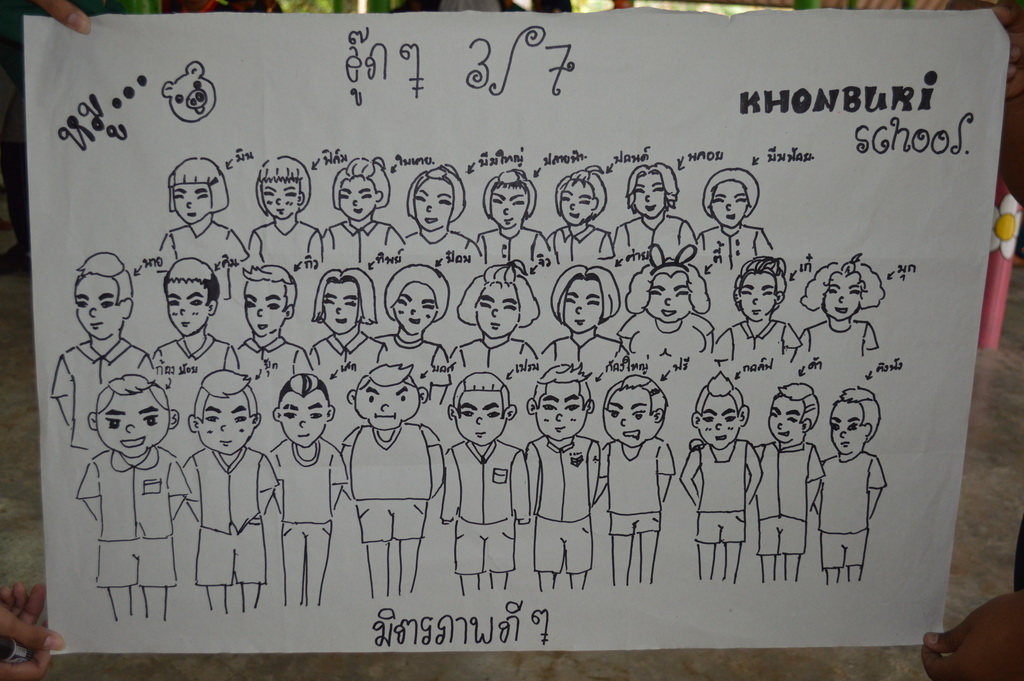 หมู...
สู๊ดๆ 3/7
KHONBURi
School.
มิน ฟิล์ม ใบเตย. บีมใหญ่ ปลายฟ้า. ปอนด์ พลอย บีมน้อย.
นาย กิว ทิพย์ จิว ค่าย ตี้ เก๋ มุก
ก้องน้อย ปุ๊ก เสก บอส เปรม ก้องใหญ่ ฟรี กอล์ฟ ต้า
มิตรภาพดีๆ